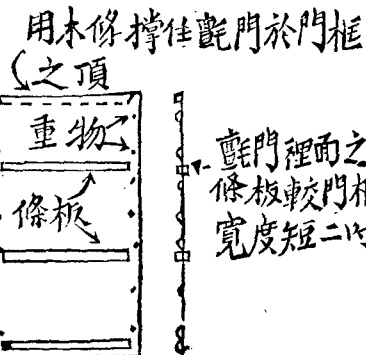 用木條撐住氈門於門框
之頂
重物
條板
氈門裡面之
條板較門框
寬度短二吋